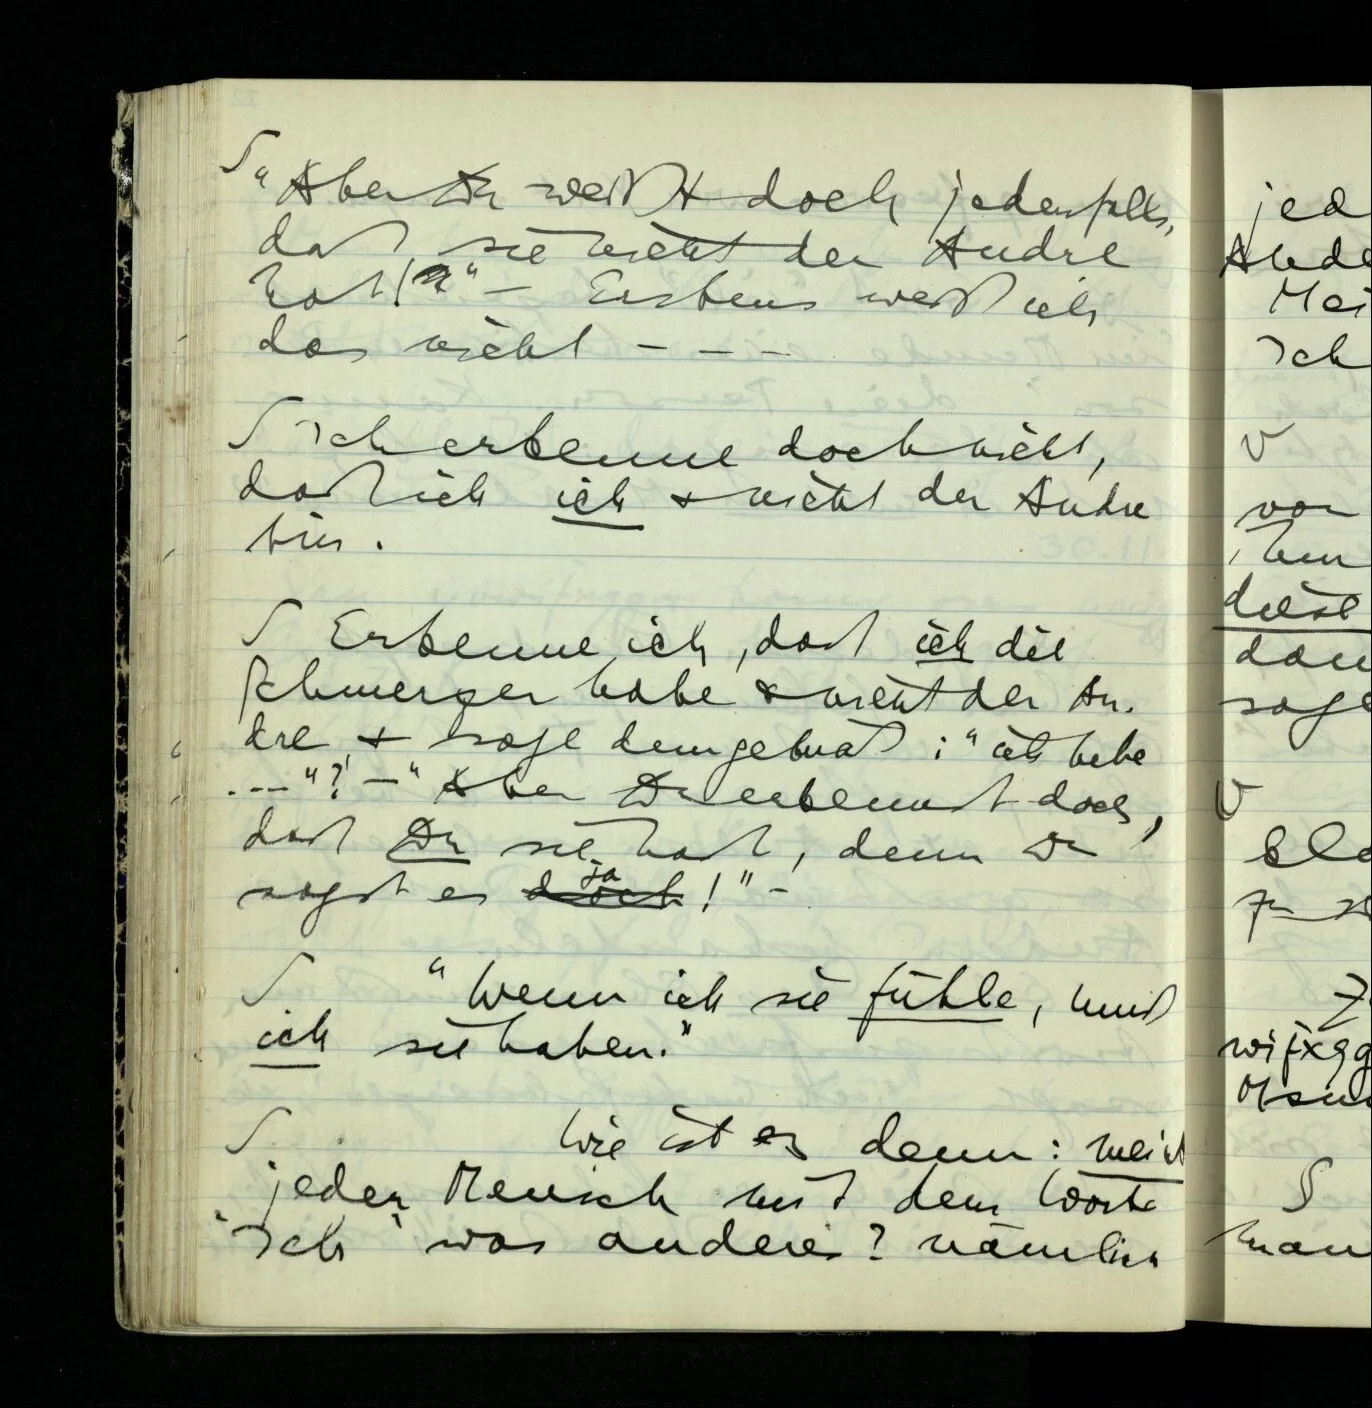 S „Aber Du weißt doch jedenfalls,
daß sie nicht der Andre
hat!“ – Erstens weiß ich
das nicht – – –
S Ich erkenne doch nicht,
daß ich ich & nicht der Andre
bin.
S Erkenne ich, daß ich die
Schmerzen habe & nicht der An-
dre, & sage demgemäß: “ich habe
...“? – “Aber Du erkennst doch,
daß Du sie hast, denn Du
sagst es doch ja!” –
S “Wenn ich sie fühle, muß
ich sie haben.”
S Wie ist es denn: meint
jeder Mensch mit dem Worte
“Ich” was anderes? nämlich
jed
Ande
Mei
Ich
V
von
diese
dan
sage
V
S